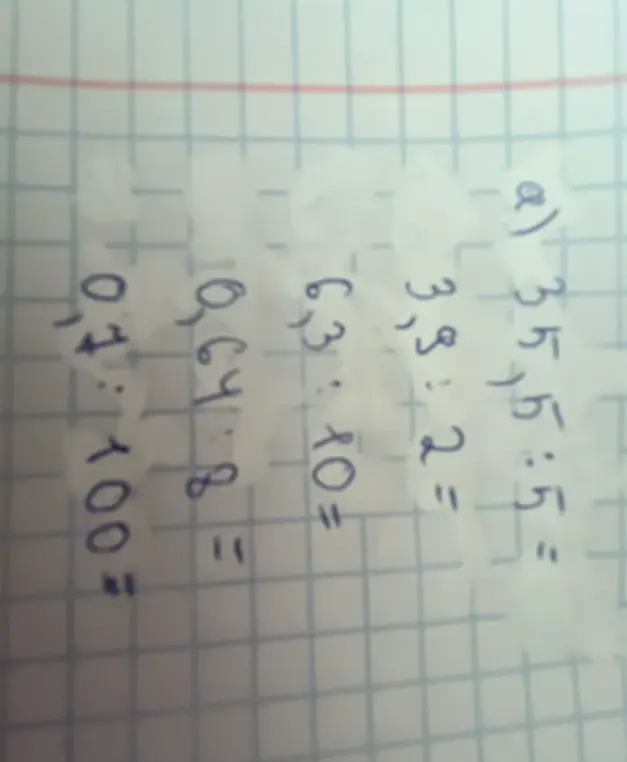 а) 35,5:5=
3,9:2=
6,3:10=
0,64:8=
0,7:100=